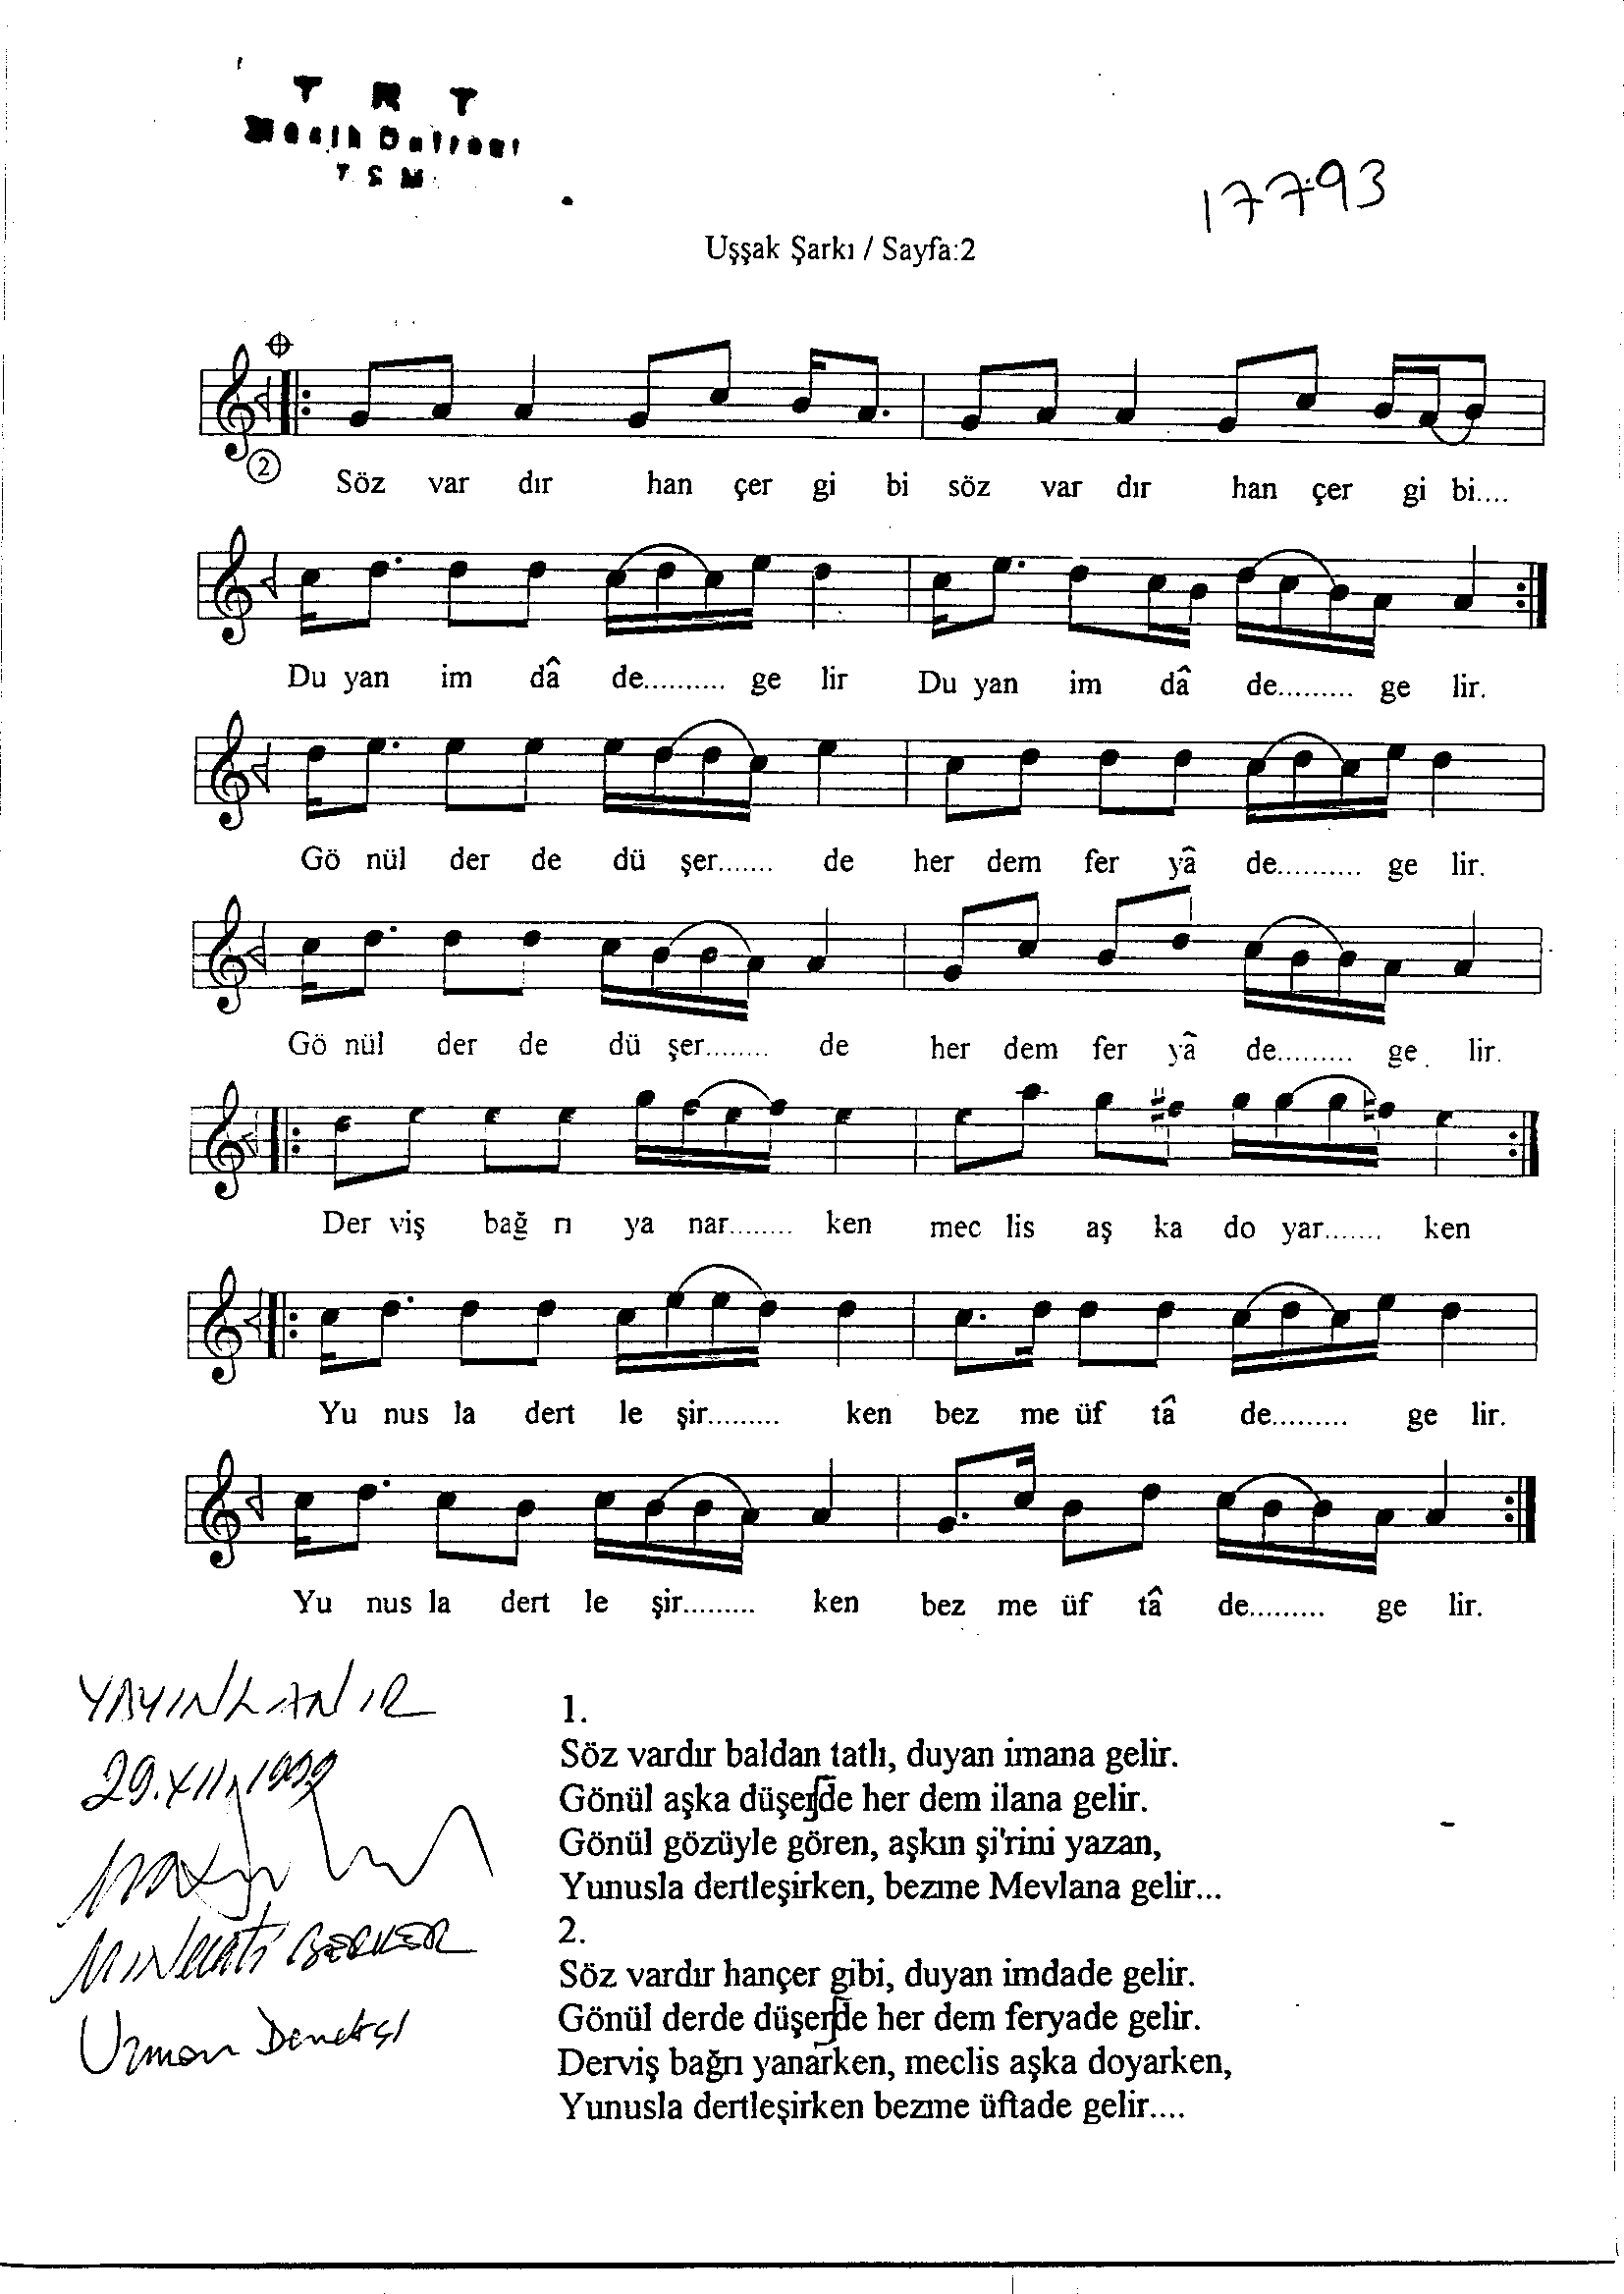 T R T
Müzik Dairesi
T S M
17793
Uşşak Şarkı / Sayfa:2
2
Söz var dır han çer gi bi söz var dır han çer gi bi....
Du yan im dâ de.......... ge lir Du yan im dâ de......... ge lir.
Gö nül der de dü şer....... de her dem fer yâ de.......... ge lir.
Gö nül der de dü şer........ de her dem fer yâ de......... ge lir.
Der viş bağ rı ya nar........ ken mec lis aş ka do yar....... ken
Yu nus la dert le şir......... ken bez me üf tâ de......... ge lir.
Yu nus la dert le şir......... ken bez me üf tâ de......... ge lir.
YAYINLANIR
29.XII.1999
BERKER
Uzman Denetçi
1.
Söz vardır baldan tatlı, duyan imana gelir.
Gönül aşka düşerde her dem ilana gelir.
Gönül gözüyle gören, aşkın şi'rini yazan,
Yunusla dertleşirken, bezme Mevlana gelir...
2.
Söz vardır hançer gibi, duyan imdade gelir.
Gönül derde düşerde her dem feryade gelir.
Derviş bağrı yanarken, meclis aşka doyarken,
Yunusla dertleşirken bezme üftade gelir....